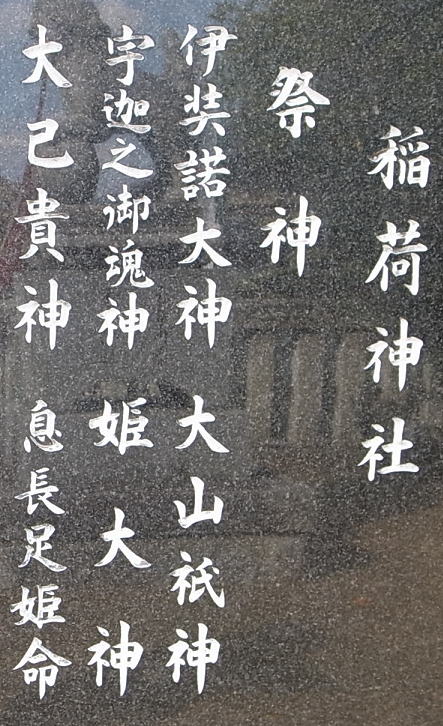 稲荷神社
祭神
伊弉諾大神 大山祇神
宇迦之御魂神 姫大神
大己貴神 息長足姫命